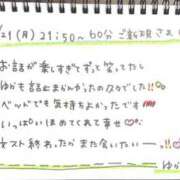 /21(月)21:50〜60分ご新規さま
お話が楽しすぎてずっと笑ってたし
ゆかも話止まらんかったのなりでした!!
ベッドでも気持ちよかったです
いっぱいほめてくれて幸せ
テスト終わったらまた会いたい
ゆ